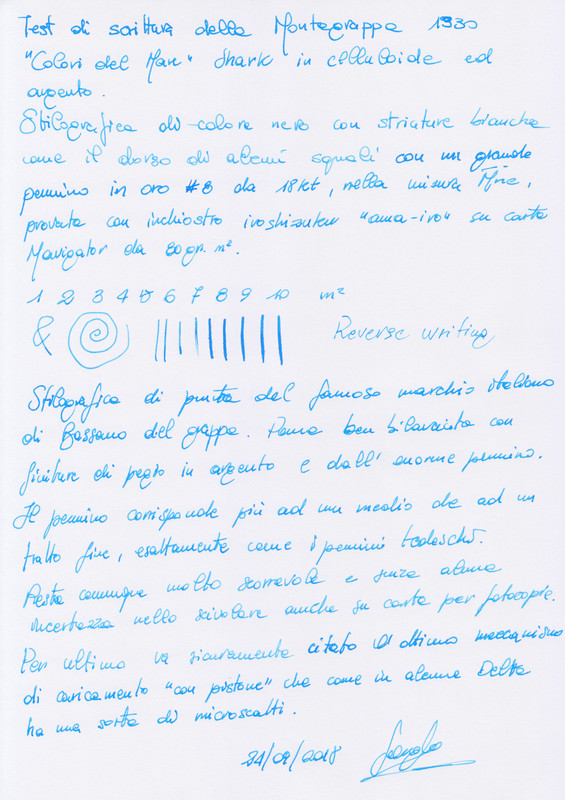 Test di scrittura della Montegrappa 1930
"Colori del Mare" Shark in celluloide ed
argento.
Stilografica di colore nero con striature bianche
come il dorso di alcuni squali con un grande
pennino in oro #8 da 18kt, nella misura fine,
provata con inchiostro iroshizuku "ama-iro" su carta
Navigator da 80gr. m².
1 2 3 4 5 6 7 8 9 10 m²
& Reverse writing
Stilografica di punta del famoso marchio italiano
di Bassano del grappa. Penna ben bilanciata con
finiture di pregio in argento e dall'enorme pennino.
Il pennino corrisponde più ad un medio che ad un
tratto fine, esattamente come i pennini tedeschi.
Resta comunque molto scorrevole e senza alcuna
incertezza nello scivolare anche su carta per fotocopie.
Per ultimo va sicuramente citato l'ottimo meccanismo
di caricamento "con pistone" che come in alcune Delta
ha una sorta di microscatti.
/09/2018